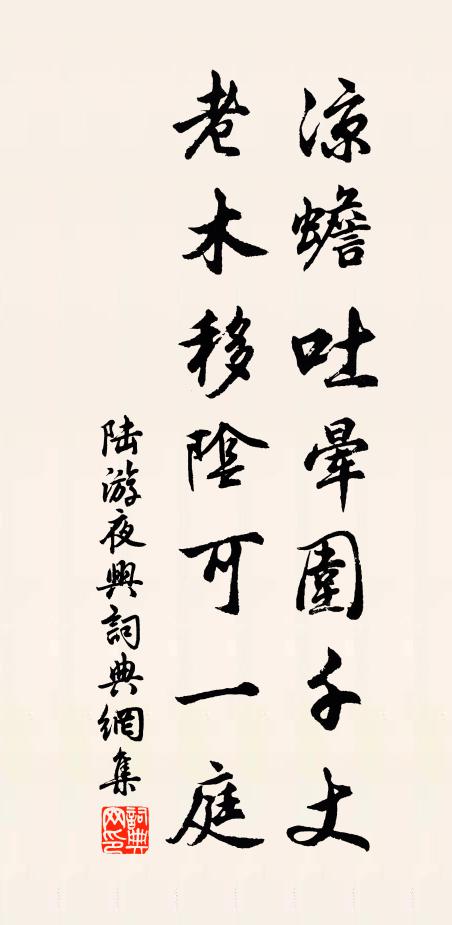 涼蟾吐暈圍千丈
老木移陰可一庭
陸游夜興詞典網集
詞典網印